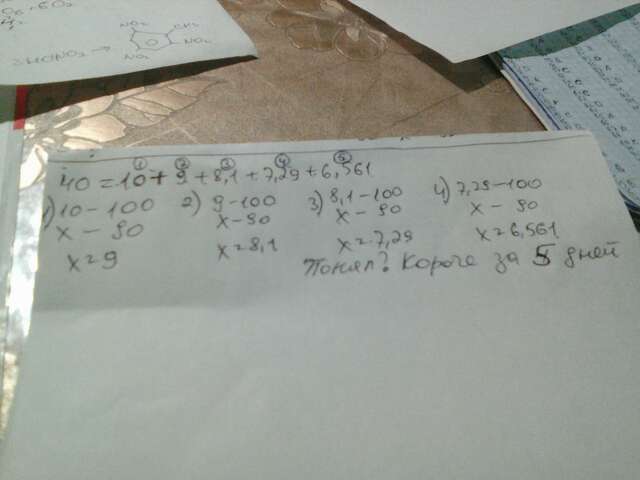 O₆ + 6O₂
NO₂
CH₃
3HONO₂ →
NO₂
NO₂
① ② ③ ④ ⑤
40 = 10 + 9 + 8,1 + 7,29 + 6,561
1) 10 – 100 2) 9 – 100 3) 8,1 – 100 4) 7,29 – 100
x – 90 x – 90 x – 90 x – 90
x = 9 x = 8,1 x = 7,29 x = 6,561
Понял? Короче за 5 дней